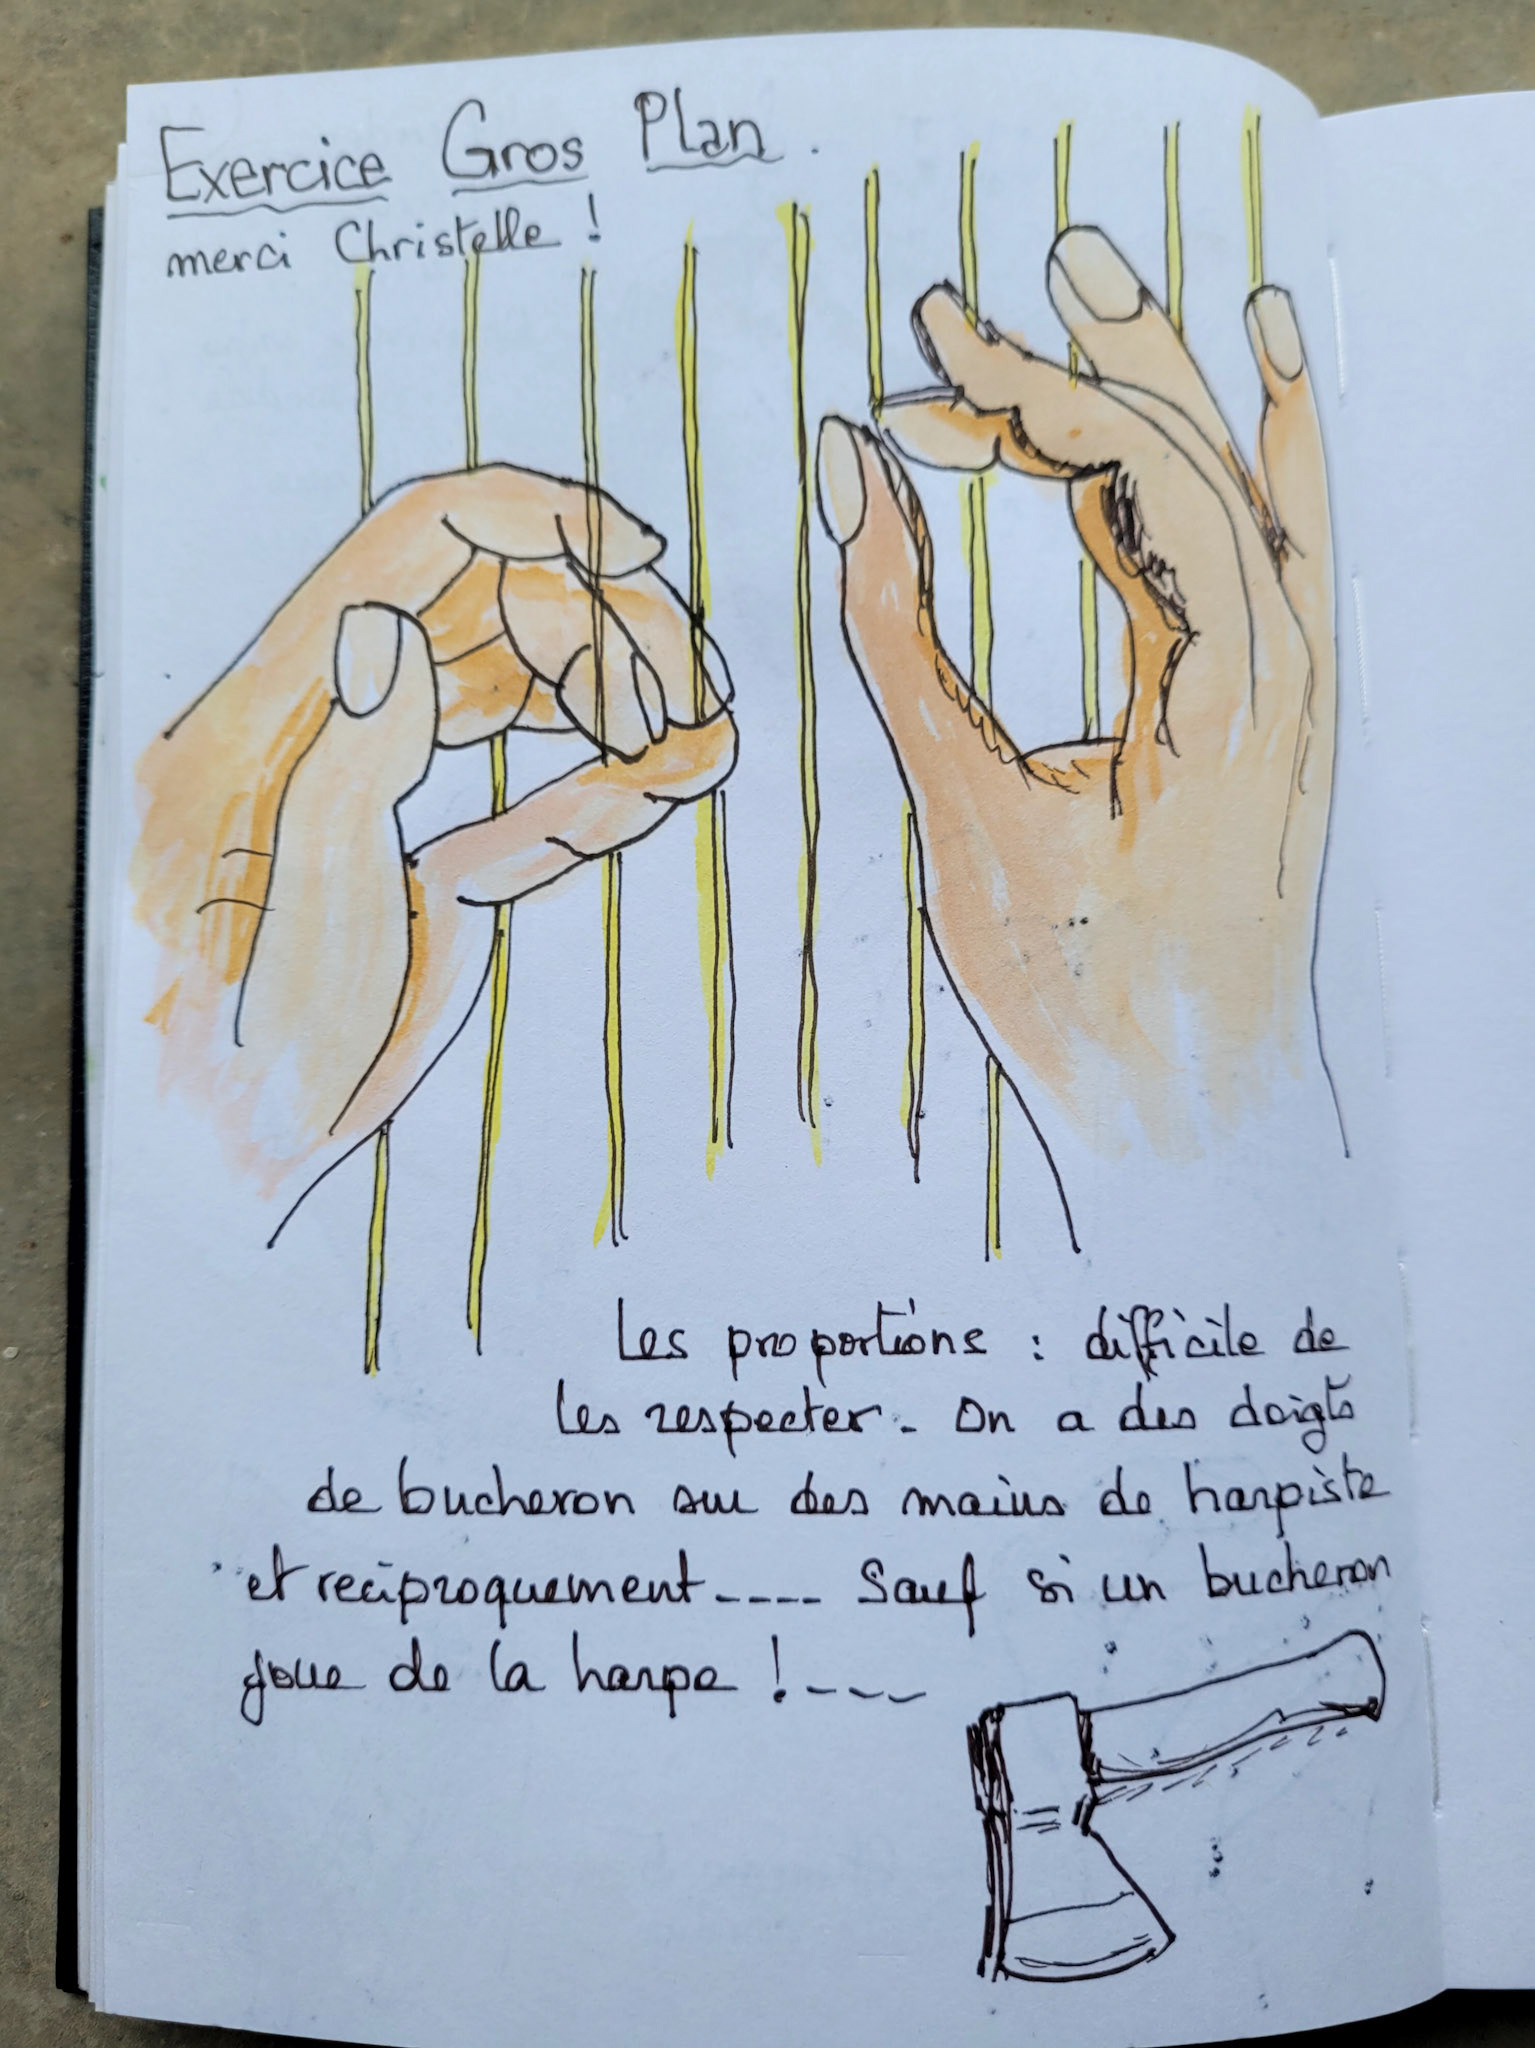 Exercice Gros Plan.
merci Christelle !
Les proportions : difficile de
les respecter. On a des doigts
de bucheron sur des mains de harpiste
et reciproquement.... Sauf si un bucheron
joue de la harpe !....